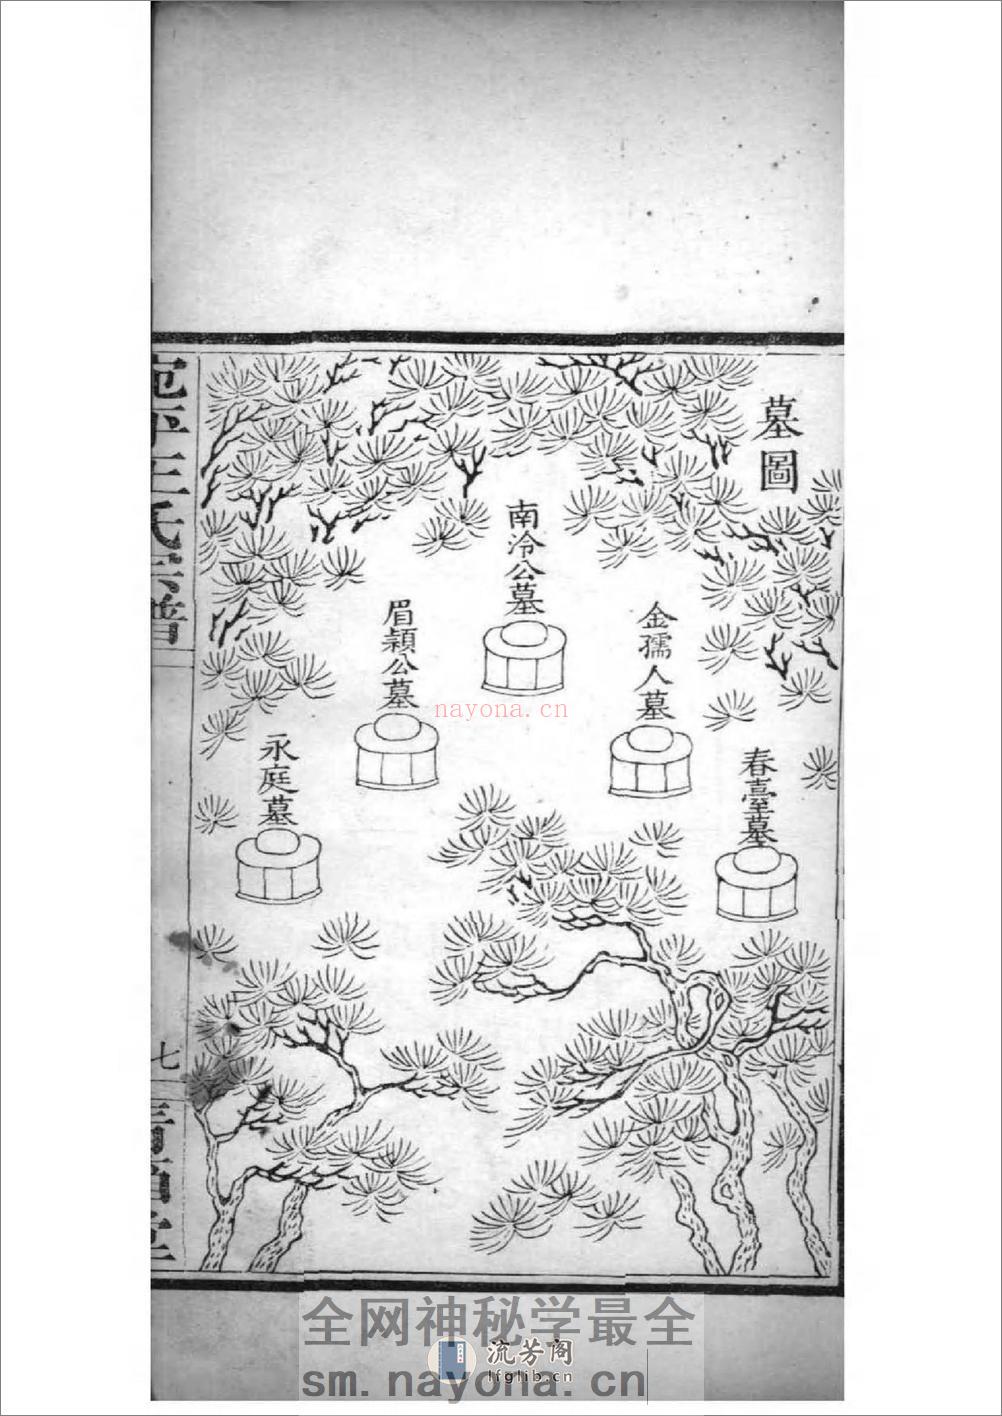 墓圖
南泠公墓
金孺人墓
眉穎公墓
春臺墓
永庭墓
宛平王氏宗譜
七
nayona.cn
全网神秘学最全
流芳阁
lfglib.cn
sm.nayona.cn